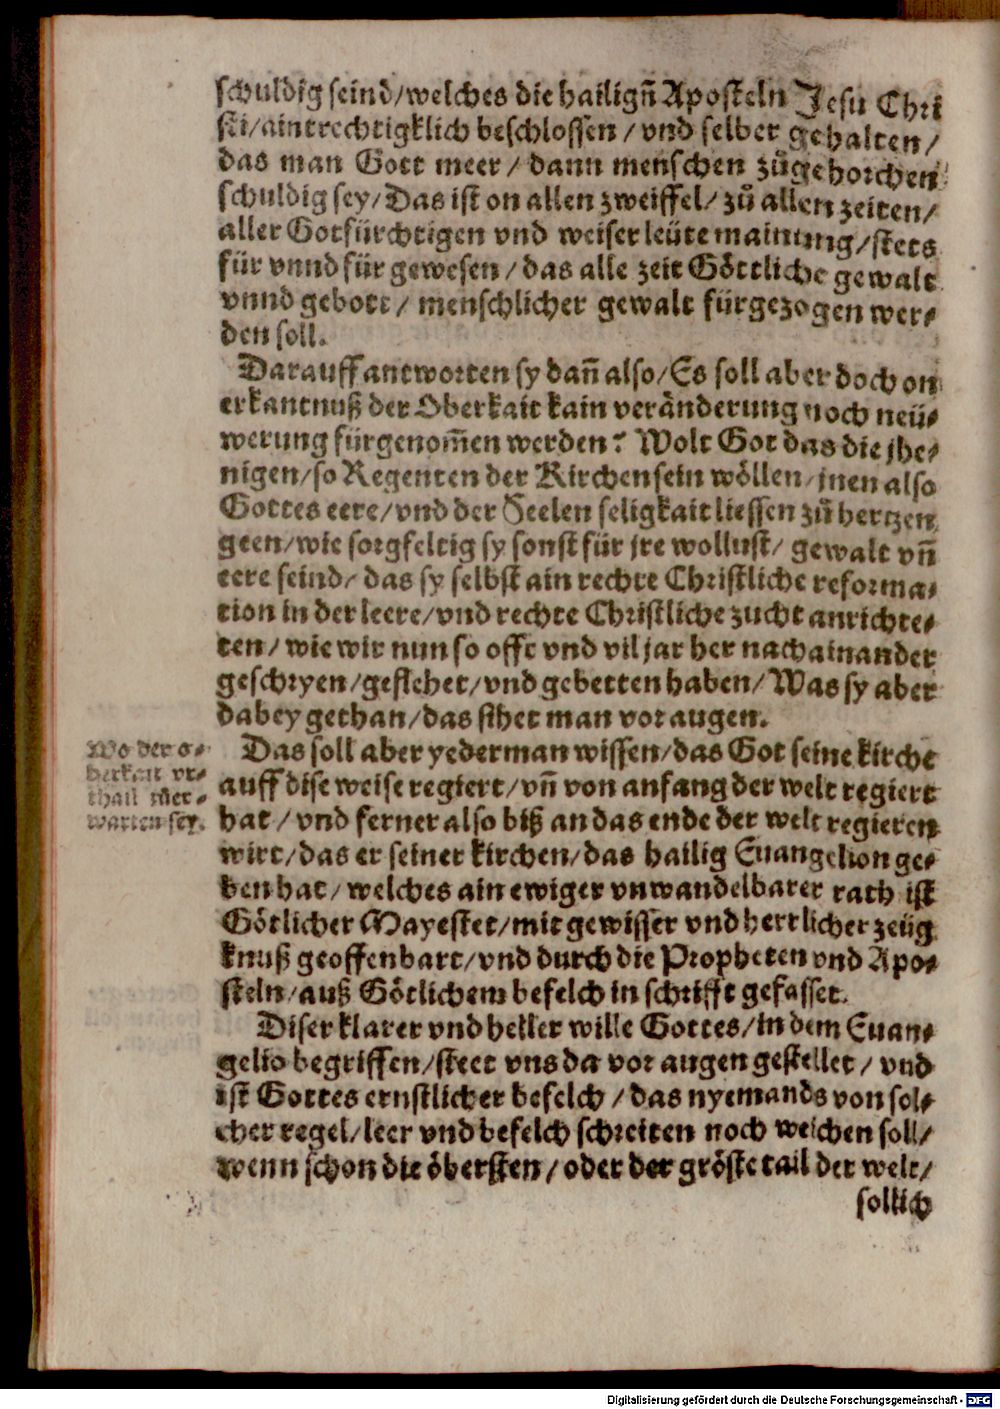 schuldig seind/welches die hailigñ Aposteln Jesu Chri
sti/aintrechtigklich beschlossen/vnd selber gehalten/
das man Gott meer/dann menschen zůgehorchen
schuldig sey/Das ist on allen zweiffel/zů allen zeiten/
aller Gotfürchtigen vnd weiser leüte mainung/stets
für vnnd für gewesen/das alle zeit Göttliche gewalt
vnnd gebott/menschlicher gewalt fürgezogen wer-
den soll.
Darauff antworten sy dañ also/Es soll aber doch on
erkantnuß der Oberkait kain veränderung noch neü-
werung fürgenom̃en werden? Wolt Got das die jhe-
nigen/so Regenten der Kirchen sein wöllen/jnen also
Gottes eere/vnd der Seelen seligkait liessen zů hertzen
geen/wie sorgfeltig sy sonst für jre wollust/gewalt vñ
eere seind/das sy selbst ain rechte Christliche reforma-
tion in der leere/vnd rechte Christliche zucht anrichte-
ten/wie wir nun so offt vnd vil jar her nachainander
geschryen/geflehet/vnd gebetten haben/Was sy aber
dabey gethan/das sihet man vor augen.
Wo der o-
berkait vr-
thail zůer-
warten sey.
Das soll aber yederman wissen/das Got seine kirche
auff dise weise regiert/vñ von anfang der welt regiert
hat/vnd ferner also biß an das ende der welt regieren
wirt/das er seiner kirchen/das hailig Euangelion ge-
ben hat/welches ain ewiger vnwandelbarer rath ist
Götlicher Mayestet/mit gewisser vnd herrlicher zeüg
knuß geoffenbart/vnd durch die Propheten vnd Apo-
steln/auß Götlichem befelch in schrifft gefasset.
Diser klarer vnd heller wille Gottes/in dem Euan-
gelio begriffen/steet vns da vor augen gestellet/vnd
ist Gottes ernstlicher befelch/das nyemands von sol-
cher regel/leer vnd befelch schreiten noch weichen soll/
wenn schon die öbersten/oder der gröste tail der welt/
sollich
Digitalisierung gefördert durch die Deutsche Forschungsgemeinschaft - DFG